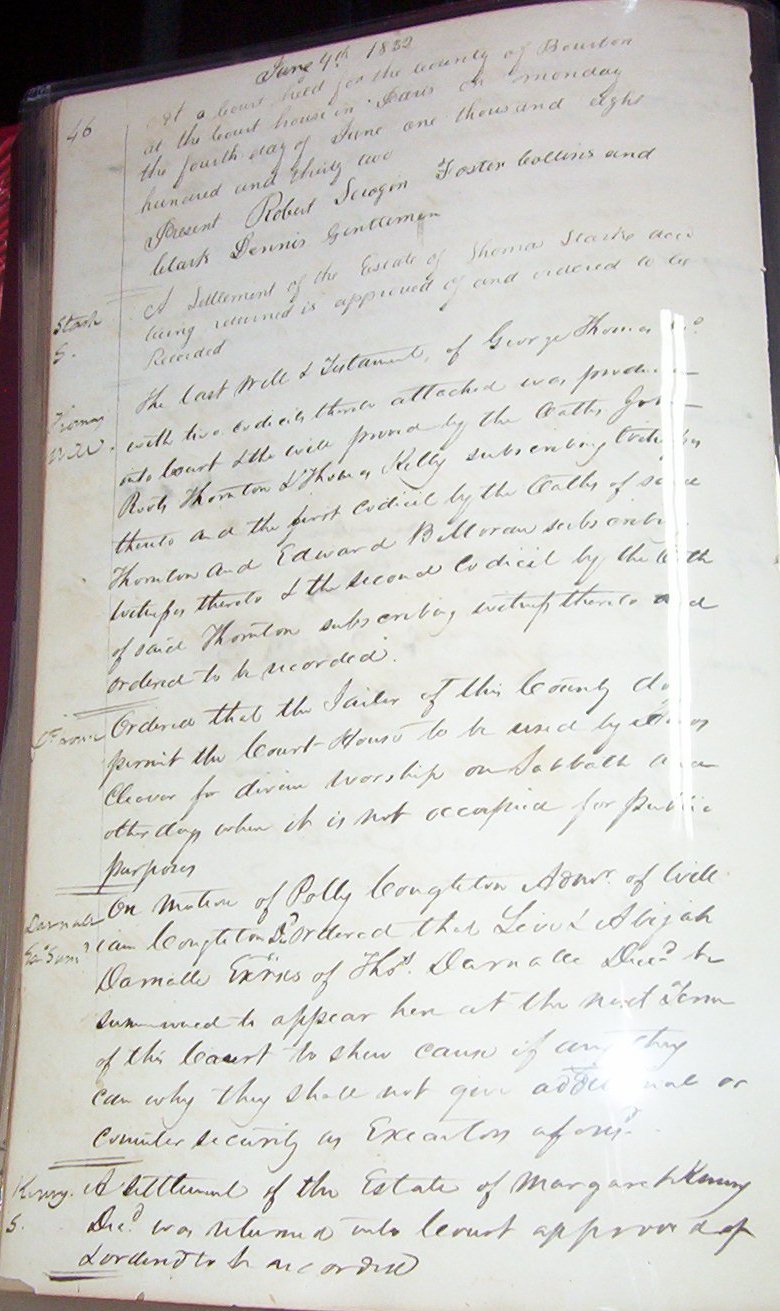 June 4th 1832
46
At a Court held for the County of Bourbon
at the Court house in Paris on monday
the fourth day of June one thousand eight
hundred and thirty two
Present Robert Scrogin Foster Collins and
Clark Dennis Gentlemen
Stark
S.
A Settlement of the Estate of Thomas Starke decd
being returned is approved of and ordered to be
Recorded
Thomas
Will.
The last Will & Testament, of George Thomas
with two codicils thereto attached was produce
into Court & the will proved by the Oaths
Roots Thornton & Thomas Kelly subscribing Witnesses
thereto and the first Codicil by the Oaths of said
Thornton and Edward subscribing
Witness thereto & the second Codicil by the Oath
of said Thornton subscribing witness thereto and
ordered to be recorded.
Ordered that the Jailer of this County do
permit the Court House to be used by
Cleaver for divine Worship on Sabbath and
other days when it is not occupied for public
purposes
Darnall
On Motion of Polly Congleton Admr. of Will
iam Congleton Dd Ordered that Levi & Abijah
Darnalle Exrs of Thos. Darnalle Decd be
summoned to appear here at the next Term
of this Court to shew cause if any they
can why they shall not give additional or
counter security as Executors aforesd.
Kenny.
S.
A Settlement of the Estate of Margaret Kenny
Decd was returned into Court approved of
& ordered to be recorded